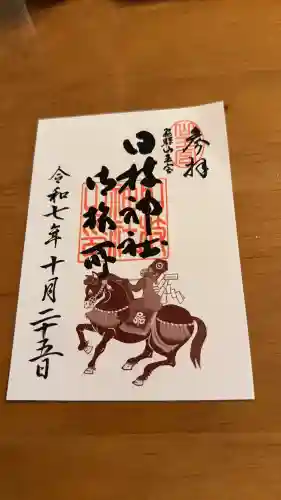 参拝
飛騨山王宮
日枝神社
御旅所
令和七年十月二十五日